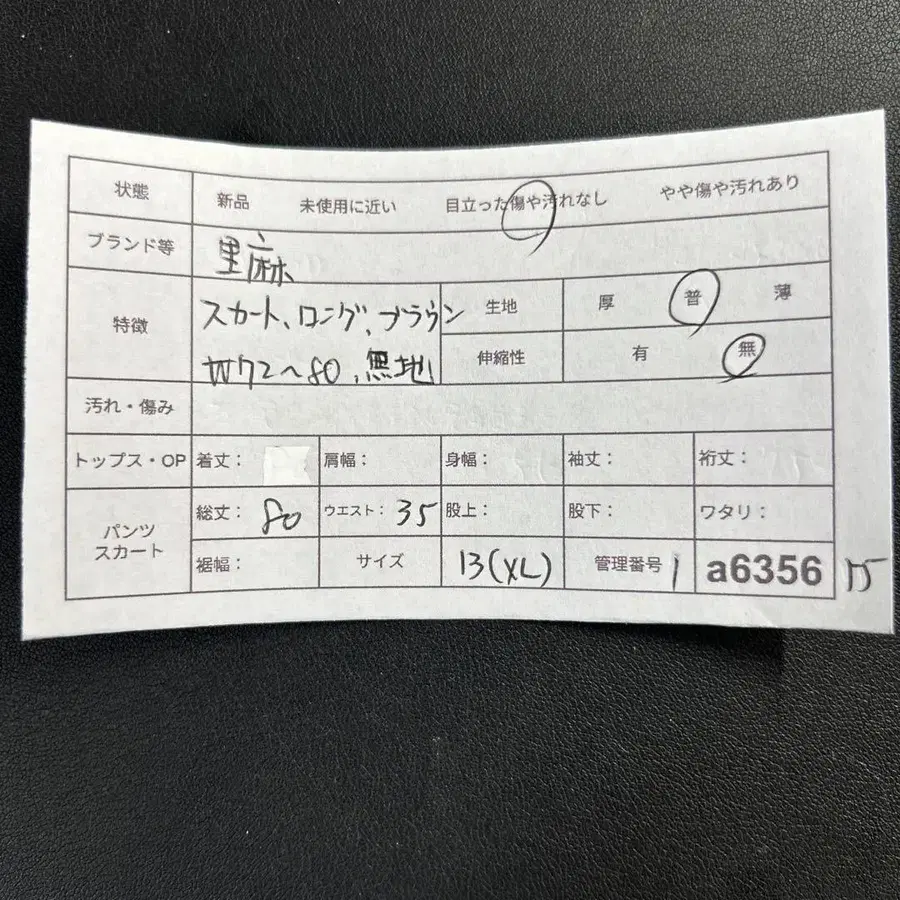 状態 新品 未使用に近い 目立った傷や汚れなし やや傷や汚れあり
ブランド等 里麻
特徴 スカート、ロング、ブラウン 生地 厚 普 薄
W72〜80、無地 伸縮性 有 無
汚れ・傷み
トップス・OP 着丈: 肩幅: 身幅: 袖丈: 裄丈:
パンツ スカート 総丈: 80 ウエスト: 35 股上: 股下: ワタリ:
裾幅: サイズ 13(XL) 管理番号 1 a6356